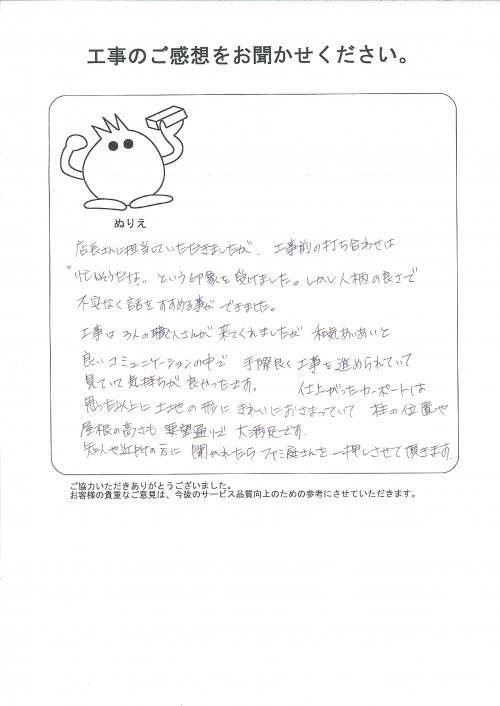 工事のご感想をお聞かせください。
ぬりえ
店長さんに担当していただきましたが、工事前の打ち合わせは
"忙しそうだな" という印象を受けました。しかし人柄の良さで
不安なく話をすすめる事ができました。
工事は3人の職人さんが来てくれましたが 和気あいあいと
良いコミュニケーションの中で 手際良く工事を進められていて
見ていて気持ちが良かったです。 仕上がったカーポートは
思った以上に土地の形にきれいにおさまっていて 柱の位置や
屋根の高さも要望通りで大満足です。
知人や近所の方に聞かれたらファミ庭さんを一押しさせて頂きます。
ご協力いただきありがとうございました。
お客様の貴重なご意見は、今後のサービス品質向上のための参考にさせていただきます。